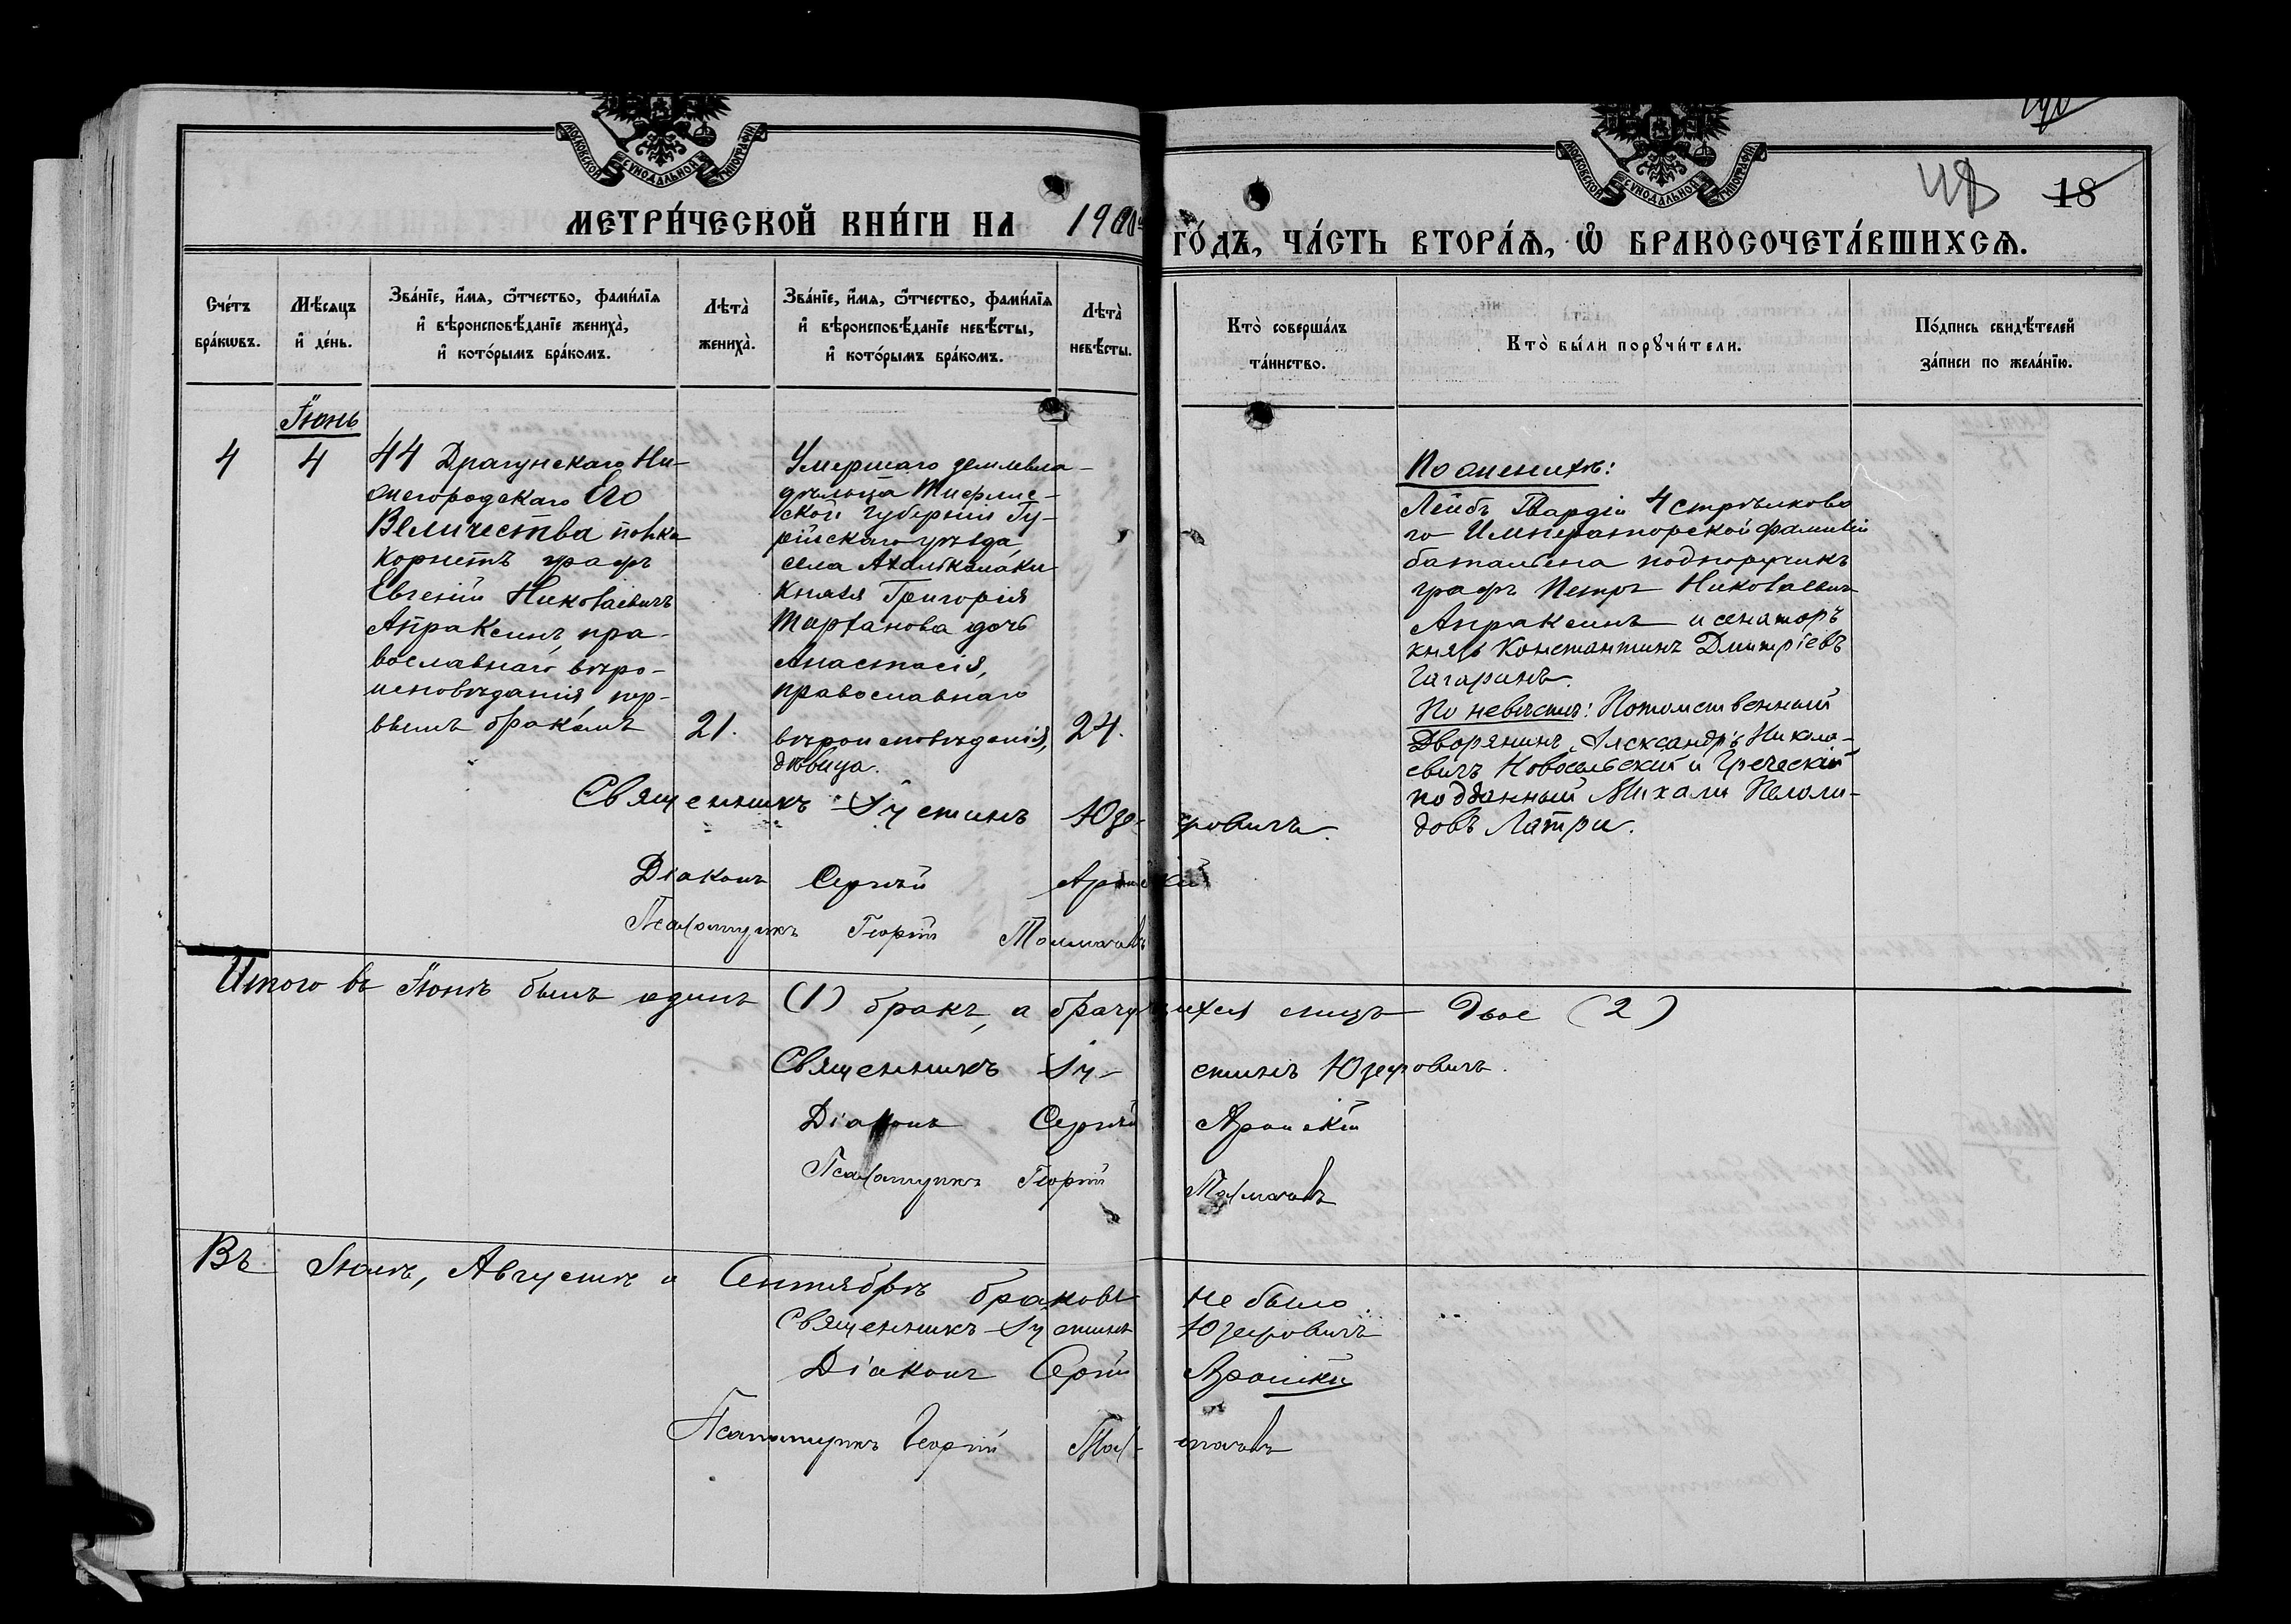 МОСКОВСКОЙ СѴНОДАЛЬНОЙ ТИПОГРАФІИ
МОСКОВСКОЙ СѴНОДАЛЬНОЙ ТИПОГРАФІИ
48 18
МЕТРИ́ЧЕСКОЙ КНИ́ГИ НА
ГО́ДЪ, ЧА́СТЬ ВТОРА́Ѧ, Ѡ҆ БРАКОСОЧЕТА́ВШИХСѦ.
Сче́тъ бра́кѡвъ.
Мѣ́сѧцъ и҆ де́нь.
Зва́нїе, и҆́мѧ, ѻ҆́тчество, фами́лїѧ и҆ вѣроисповѣ́данїе жениха̀, и҆ кото́рымъ бра́комъ.
Лѣта̀ жениха̀.
Зва́нїе, и҆́мѧ, ѻ҆́тчество, фами́лїѧ и҆ вѣроисповѣ́данїе невѣ́сты, и҆ кото́рымъ бра́комъ.
Лѣта̀ невѣ́сты.
Кто̀ соверша́лъ та́инство.
Кто̀ бы́ли порꙋчи́тели.
По́дпись свидѣ́телей за́писи по жела́нїю.
Іюнь
4
4
44 Драгунскаго Ни-
жегородскаго Его
Величества полка
корнетъ графъ
Евгеній Николаевичъ
Апраксинъ, пра-
вославнаго вѣро-
исповѣданія, пер-
вымъ бракомъ
21.
Умершаго землевла-
дѣльца Тифлис-
ской губерніи Го-
рійскаго уѣзда
села Ахалкалаки
Князя Григорія
Тарханова дочь
Анастасія,
православнаго
вѣроисповѣданія,
дѣвица.
24.
По женихѣ:
Лейбъ Гвардіи 4 стрѣлково
го Императорской фамиліи
баталіона подпоручикъ
графъ Петръ Николаевичъ
Апраксинъ и сенаторъ
князь Константинъ Дмитріевъ
Гагаринъ.
По невѣстѣ: Потомственный
Дворянинъ Александръ Никола-
евичъ Новосельскій и Греческій
подданный Михали
довъ Латри.
Священникъ Іустинъ Юзефовичъ.
Діаконъ Сергѣй
Псаломщикъ Георгій Толмачевъ
Итого въ Іюнѣ былъ одинъ (1) бракъ, а брачущихся лицъ двое (2)
Священникъ Іустинъ Юзефовичъ.
Діаконъ Сергѣй
Псаломщикъ Георгій Толмачевъ
Въ Іюлѣ, Августѣ и Сентябрѣ браковъ не было.
Священникъ Іустинъ Юзефовичъ
Діаконъ Сергій
Псаломщикъ Георгій Толмачевъ